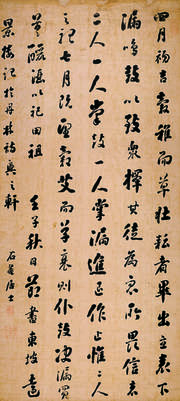 四月初吉穀稚而草壯耘者畢出立表下
漏鳴鼓以致衆擇其徒為衆所畏信者
二人一人掌鼓一人掌漏進退作止惟二人
之聽七月既望穀艾而草衰則仆鼓決漏買
羊豕酒醴以祀田祖 壬子秋日節書東坡遠
景樓記於丹林詩之軒
石菴居士